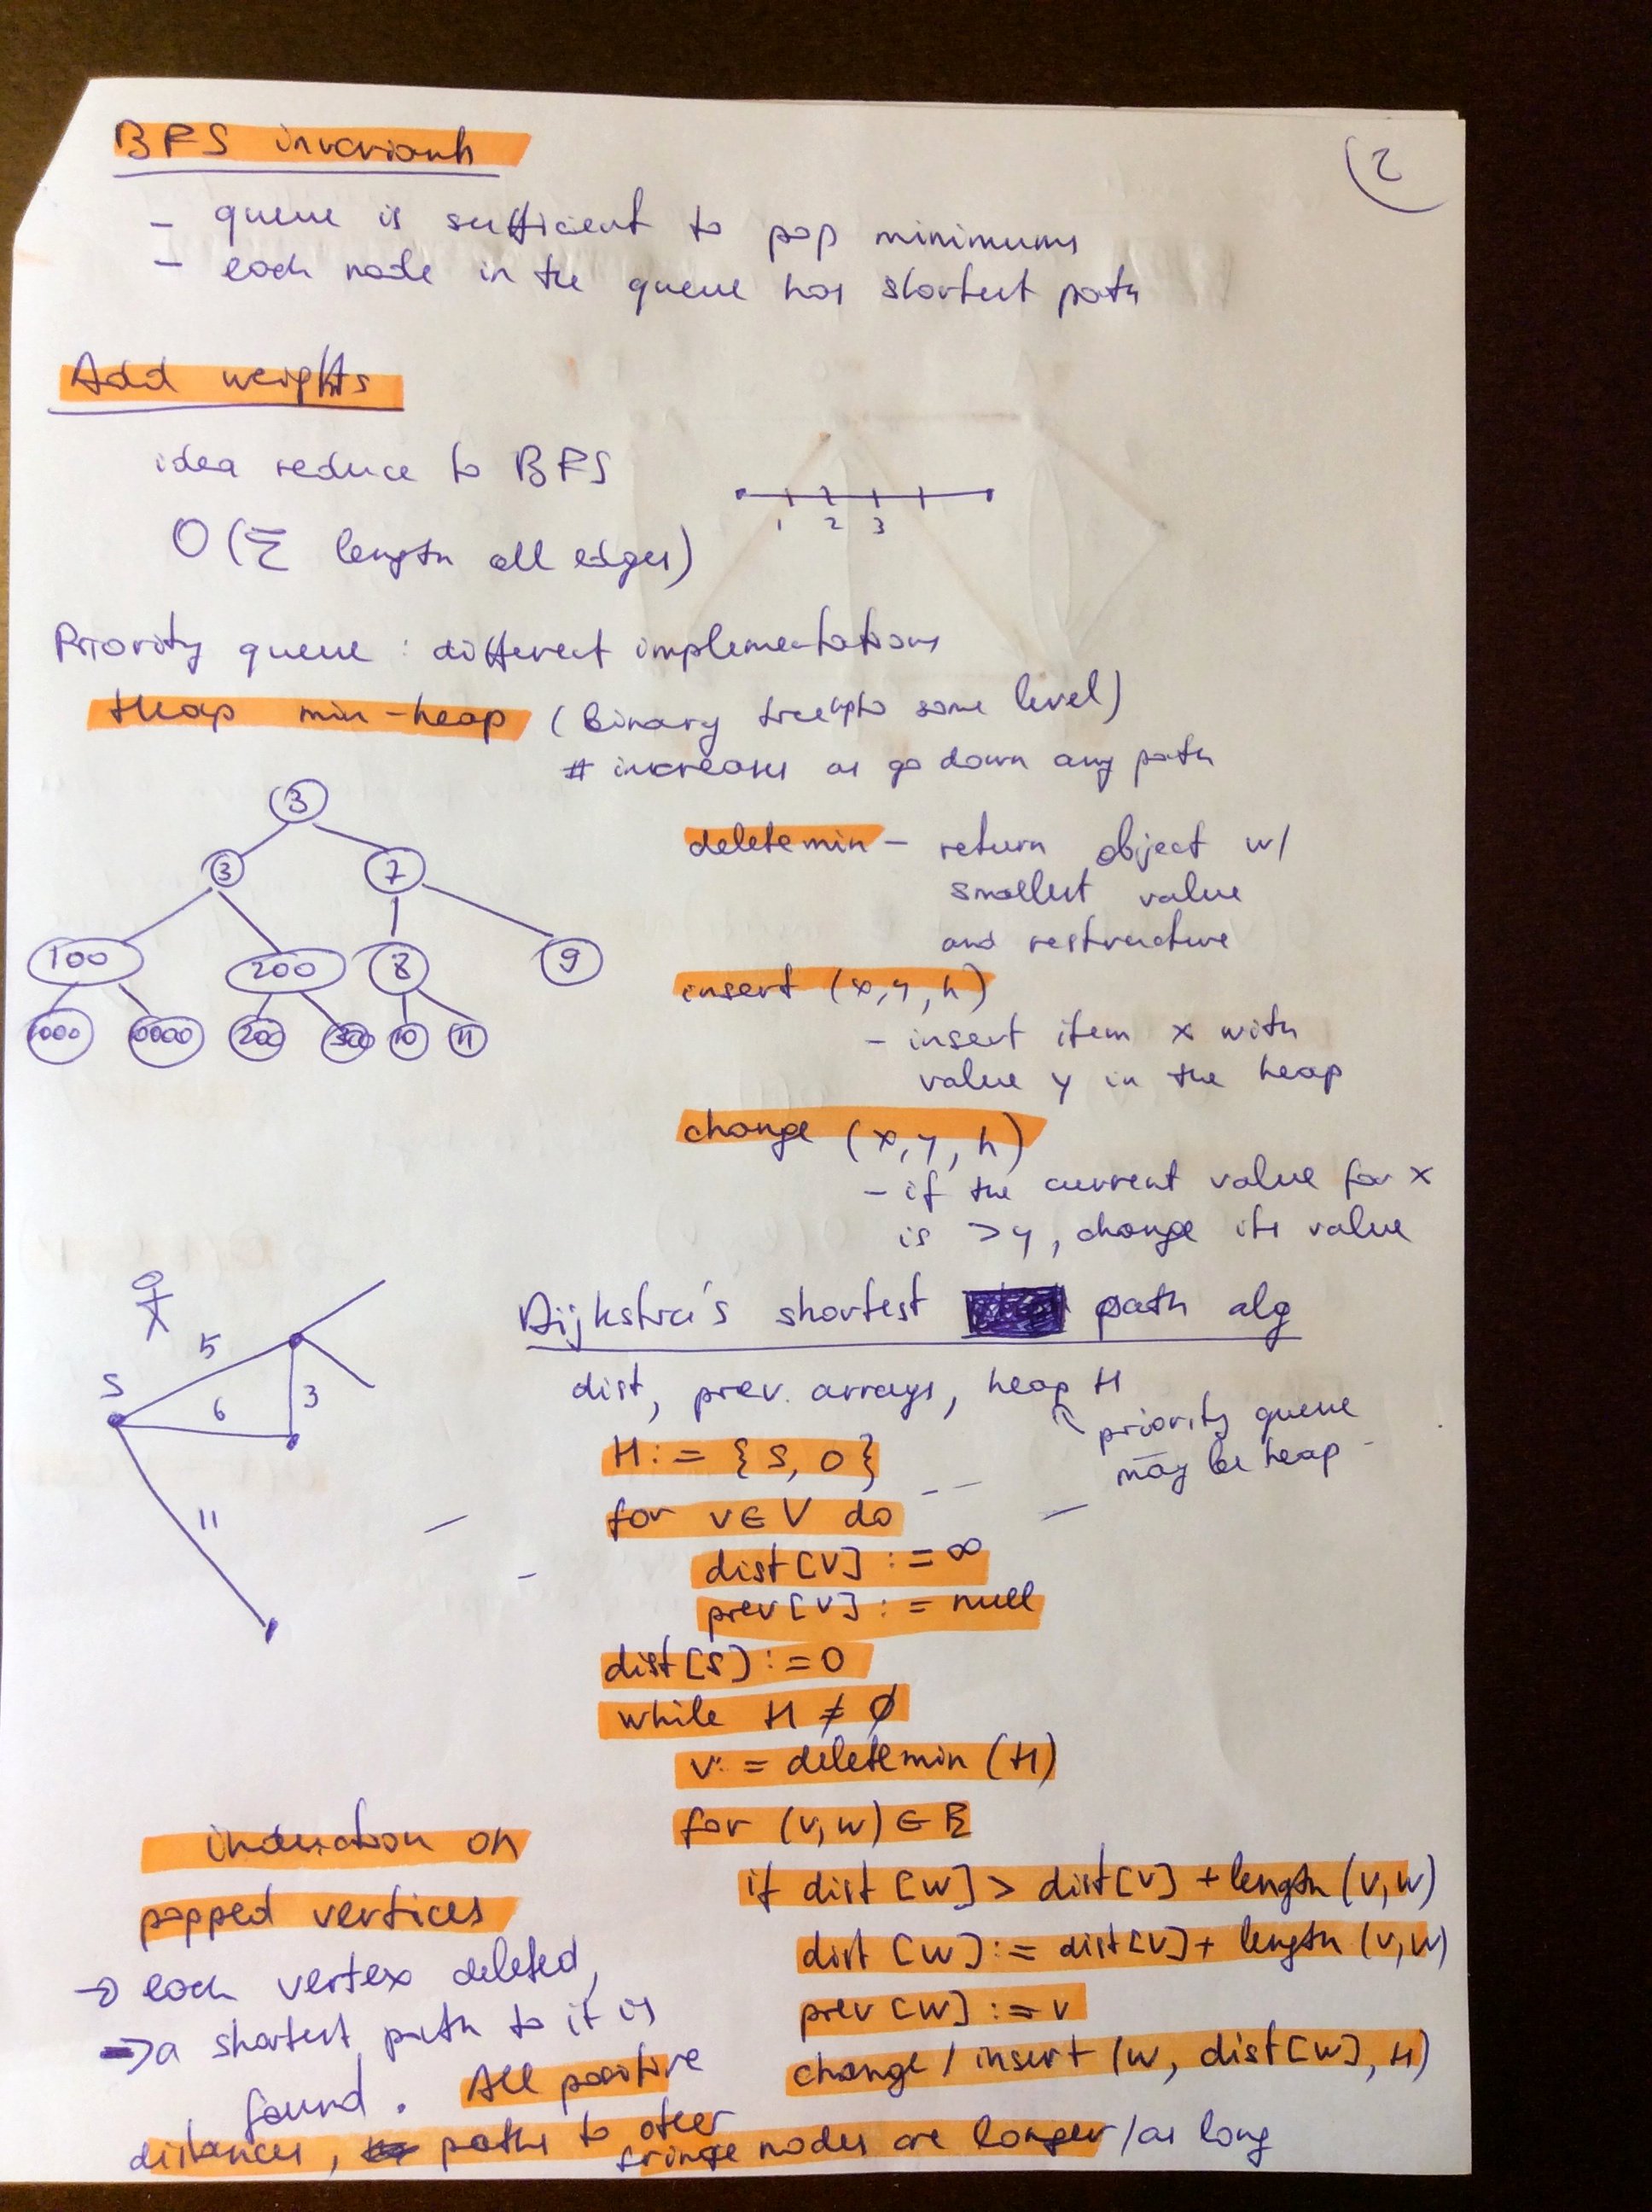 BFS invariant
2
- queue is sufficient to pop minimums
- each node in the queue has shortest path
Add weights
idea reduce to BFS
1 2 3
O(Σ length all edges)
Priority queue : different implementations
Heap min-heap (binary tree upto some level)
# increases as go down any path
3
3 7
100 200 8 9
1000 10000 200 300 10 11
deletemin - return object w/
smallest value
and restructure
insert (x, y, h)
- insert item x with
value y in the heap
change (x, y, h)
- if the current value for x
is > y, change its value
S 5 6 3 11
Dijkstra's shortest path alg
dist, prev. arrays, heap H
priority queue
may be heap
H := {S, 0}
for v ∈ V do
dist[v] := ∞
prev[v] := null
dist[s] := 0
while H ≠ ∅
v := deletemin (H)
for (v, w) ∈ E
if dist [w] > dist[v] + length (v, w)
dist [w] := dist[v] + length (v, w)
prev [w] := v
change / insert (w, dist[w], H)
induction on
popped vertices
→ each vertex deleted,
→ a shortest path to it is
found. All positive
distances, paths to other
fringe nodes are longer / as long